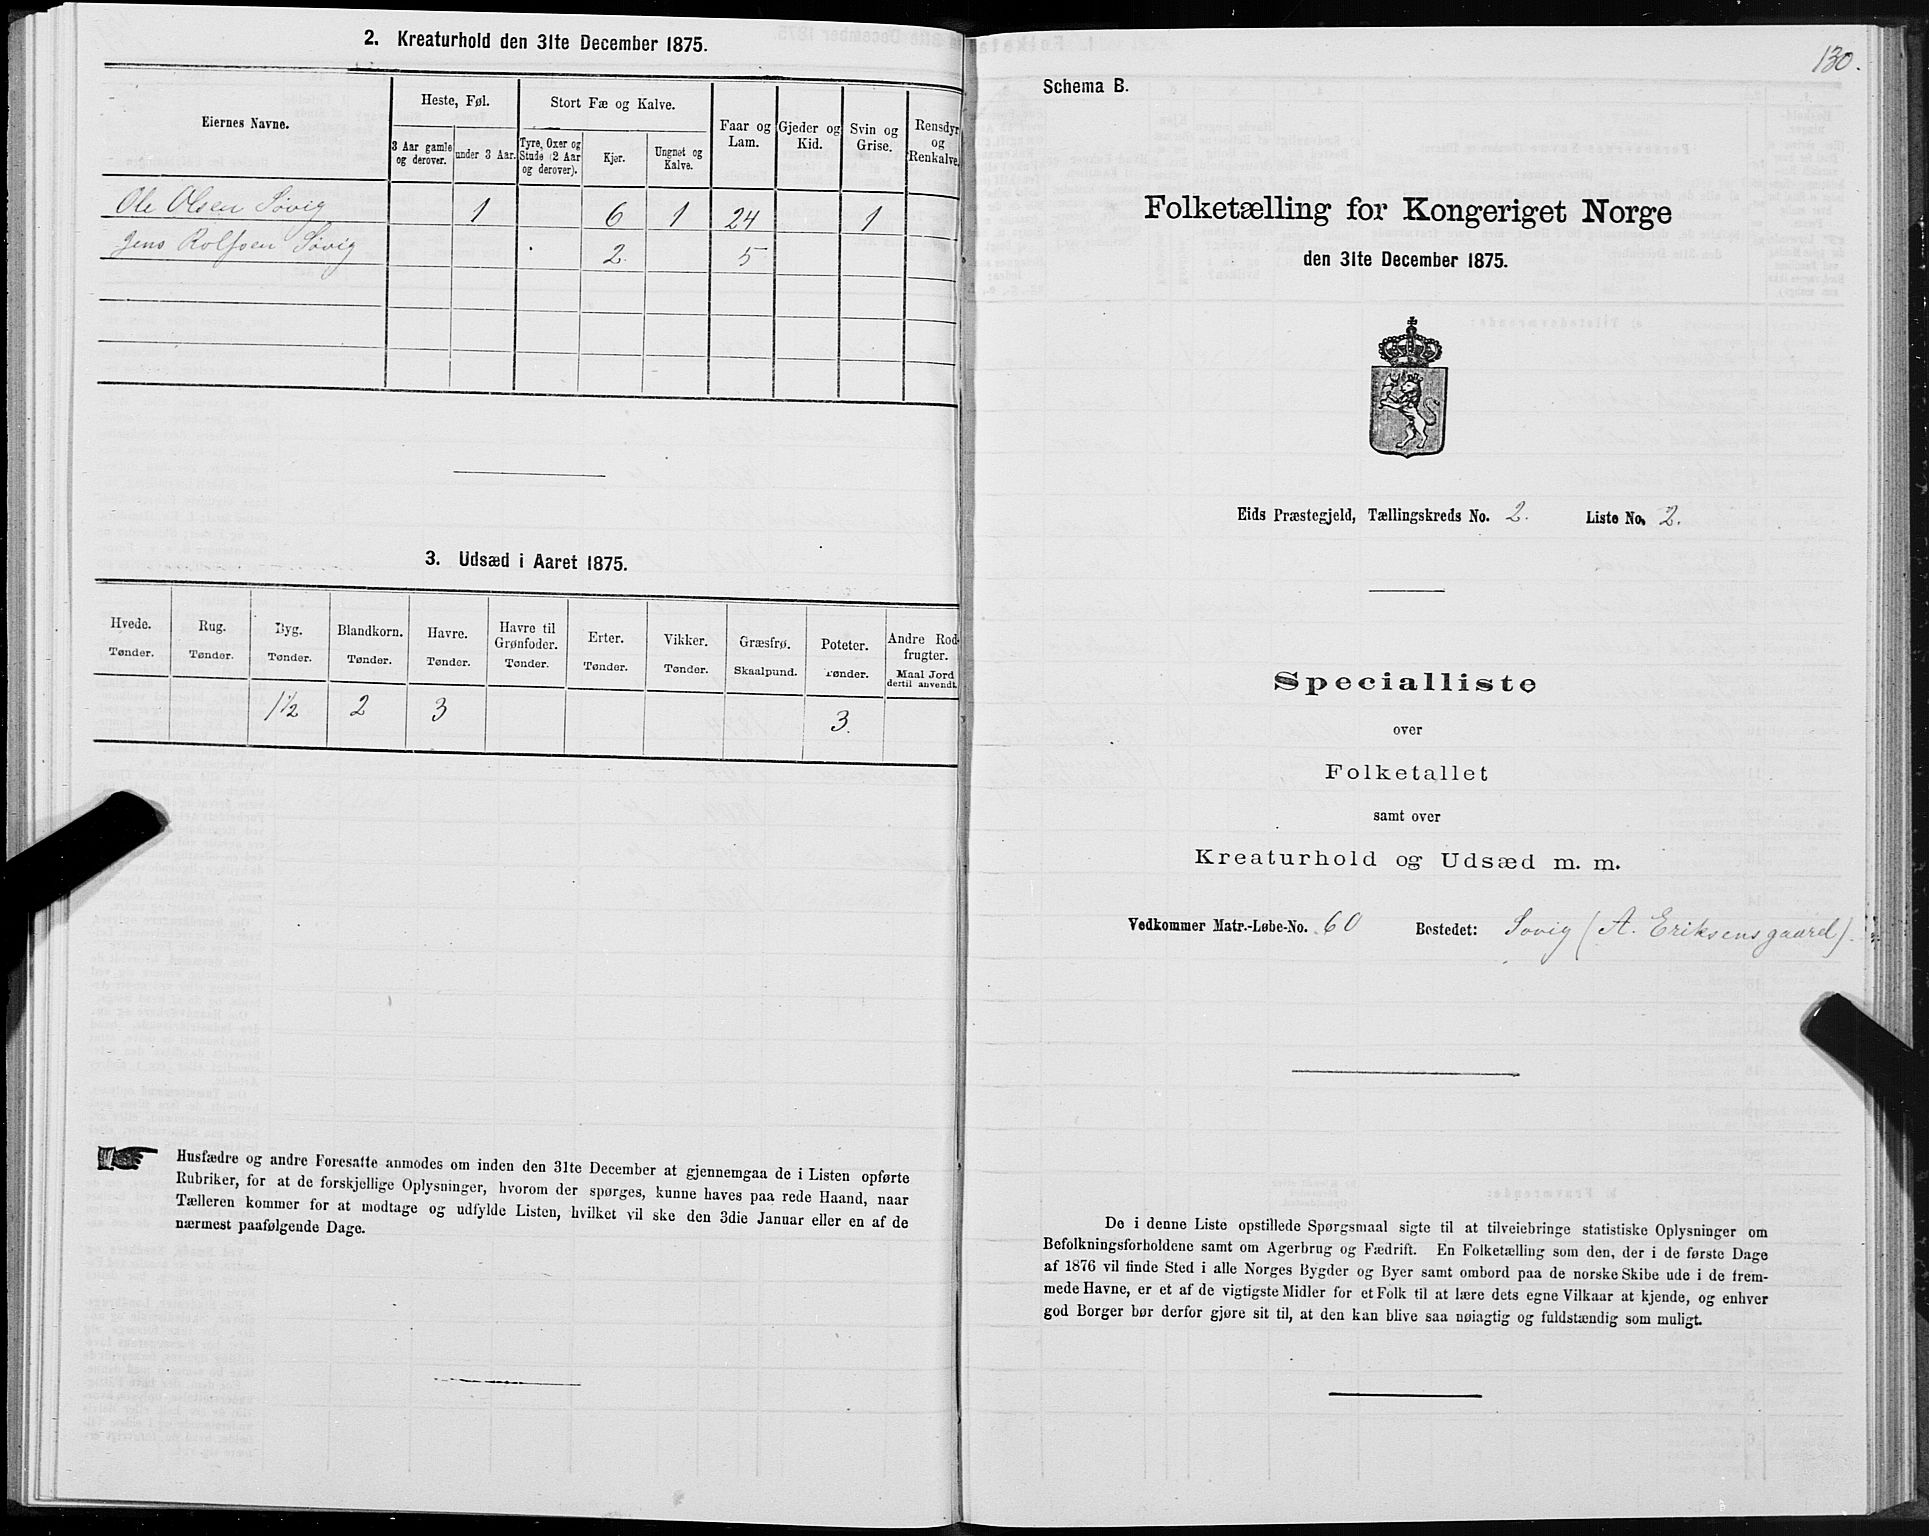 2. Kreaturhold den 31te December 1875.
Eiernes Navne.
Heste, Føl.
Stort Fæ og Kalve.
Faar og Lam.
Gjeder og Kid.
Svin og Grise.
Rensdyr og Renkalve.
3 Aar gamle og derover.
under 3 Aar.
Tyre, Oxer og Stude (2 Aar og derover).
Kjør.
Ungnøt og Kalve.
Ole Olsen Søvig 1 6 1 24 1
Jens Rolfsen Søvig 2. 5
3. Udsæd i Aaret 1875.
Hvede. Rug. Byg. Blandkorn. Havre. Havre til Grønfoder. Erter. Vikker. Græsfrø. Poteter. Andre Rodfrugter.
Tønder. Tønder. Tønder. Tønder. Tønder. Tønder. Tønder. Tønder. Skaalpund. Tønder. Maal Jord dertil anvendt.
1 1/2 2 3 3.
Husfædre og andre Foresatte anmodes om inden den 31te December at gjennemgaa de i Listen opførte
Rubriker, for at de forskjellige Oplysninger, hvorom der spørges, kunne haves paa rede Haand, naar
Tælleren kommer for at modtage og udfylde Listen, hvilket vil ske den 3die Januar eller en af de
nærmest paafølgende Dage.
130.
Schema B.
Folketælling for Kongeriget Norge
den 31te December 1875.
Eids Præstegjeld, Tællingskreds No. 2. Liste No. 2.
Specialliste
over
Folketallet
samt over
Kreaturhold og Udsæd m. m.
Vedkommer Matr.-Løbe-No. 60 Bostedet: Søvig (A. Eriksensgaard).
De i denne Liste opstillede Spørgsmaal sigte til at tilveiebringe statistiske Oplysninger om
Befolkningsforholdene samt om Agerbrug og Fædrift. En Folketælling som den, der i de første Dage
af 1876 vil finde Sted i alle Norges Bygder og Byer samt ombord paa de norske Skibe ude i de frem-
mede Havne, er et af de vigtigste Midler for et Folk til at lære dets egne Vilkaar at kjende, og enhver
god Borger bør derfor gjøre sit til, at den kan blive saa nøiagtig og fuldstændig som muligt.